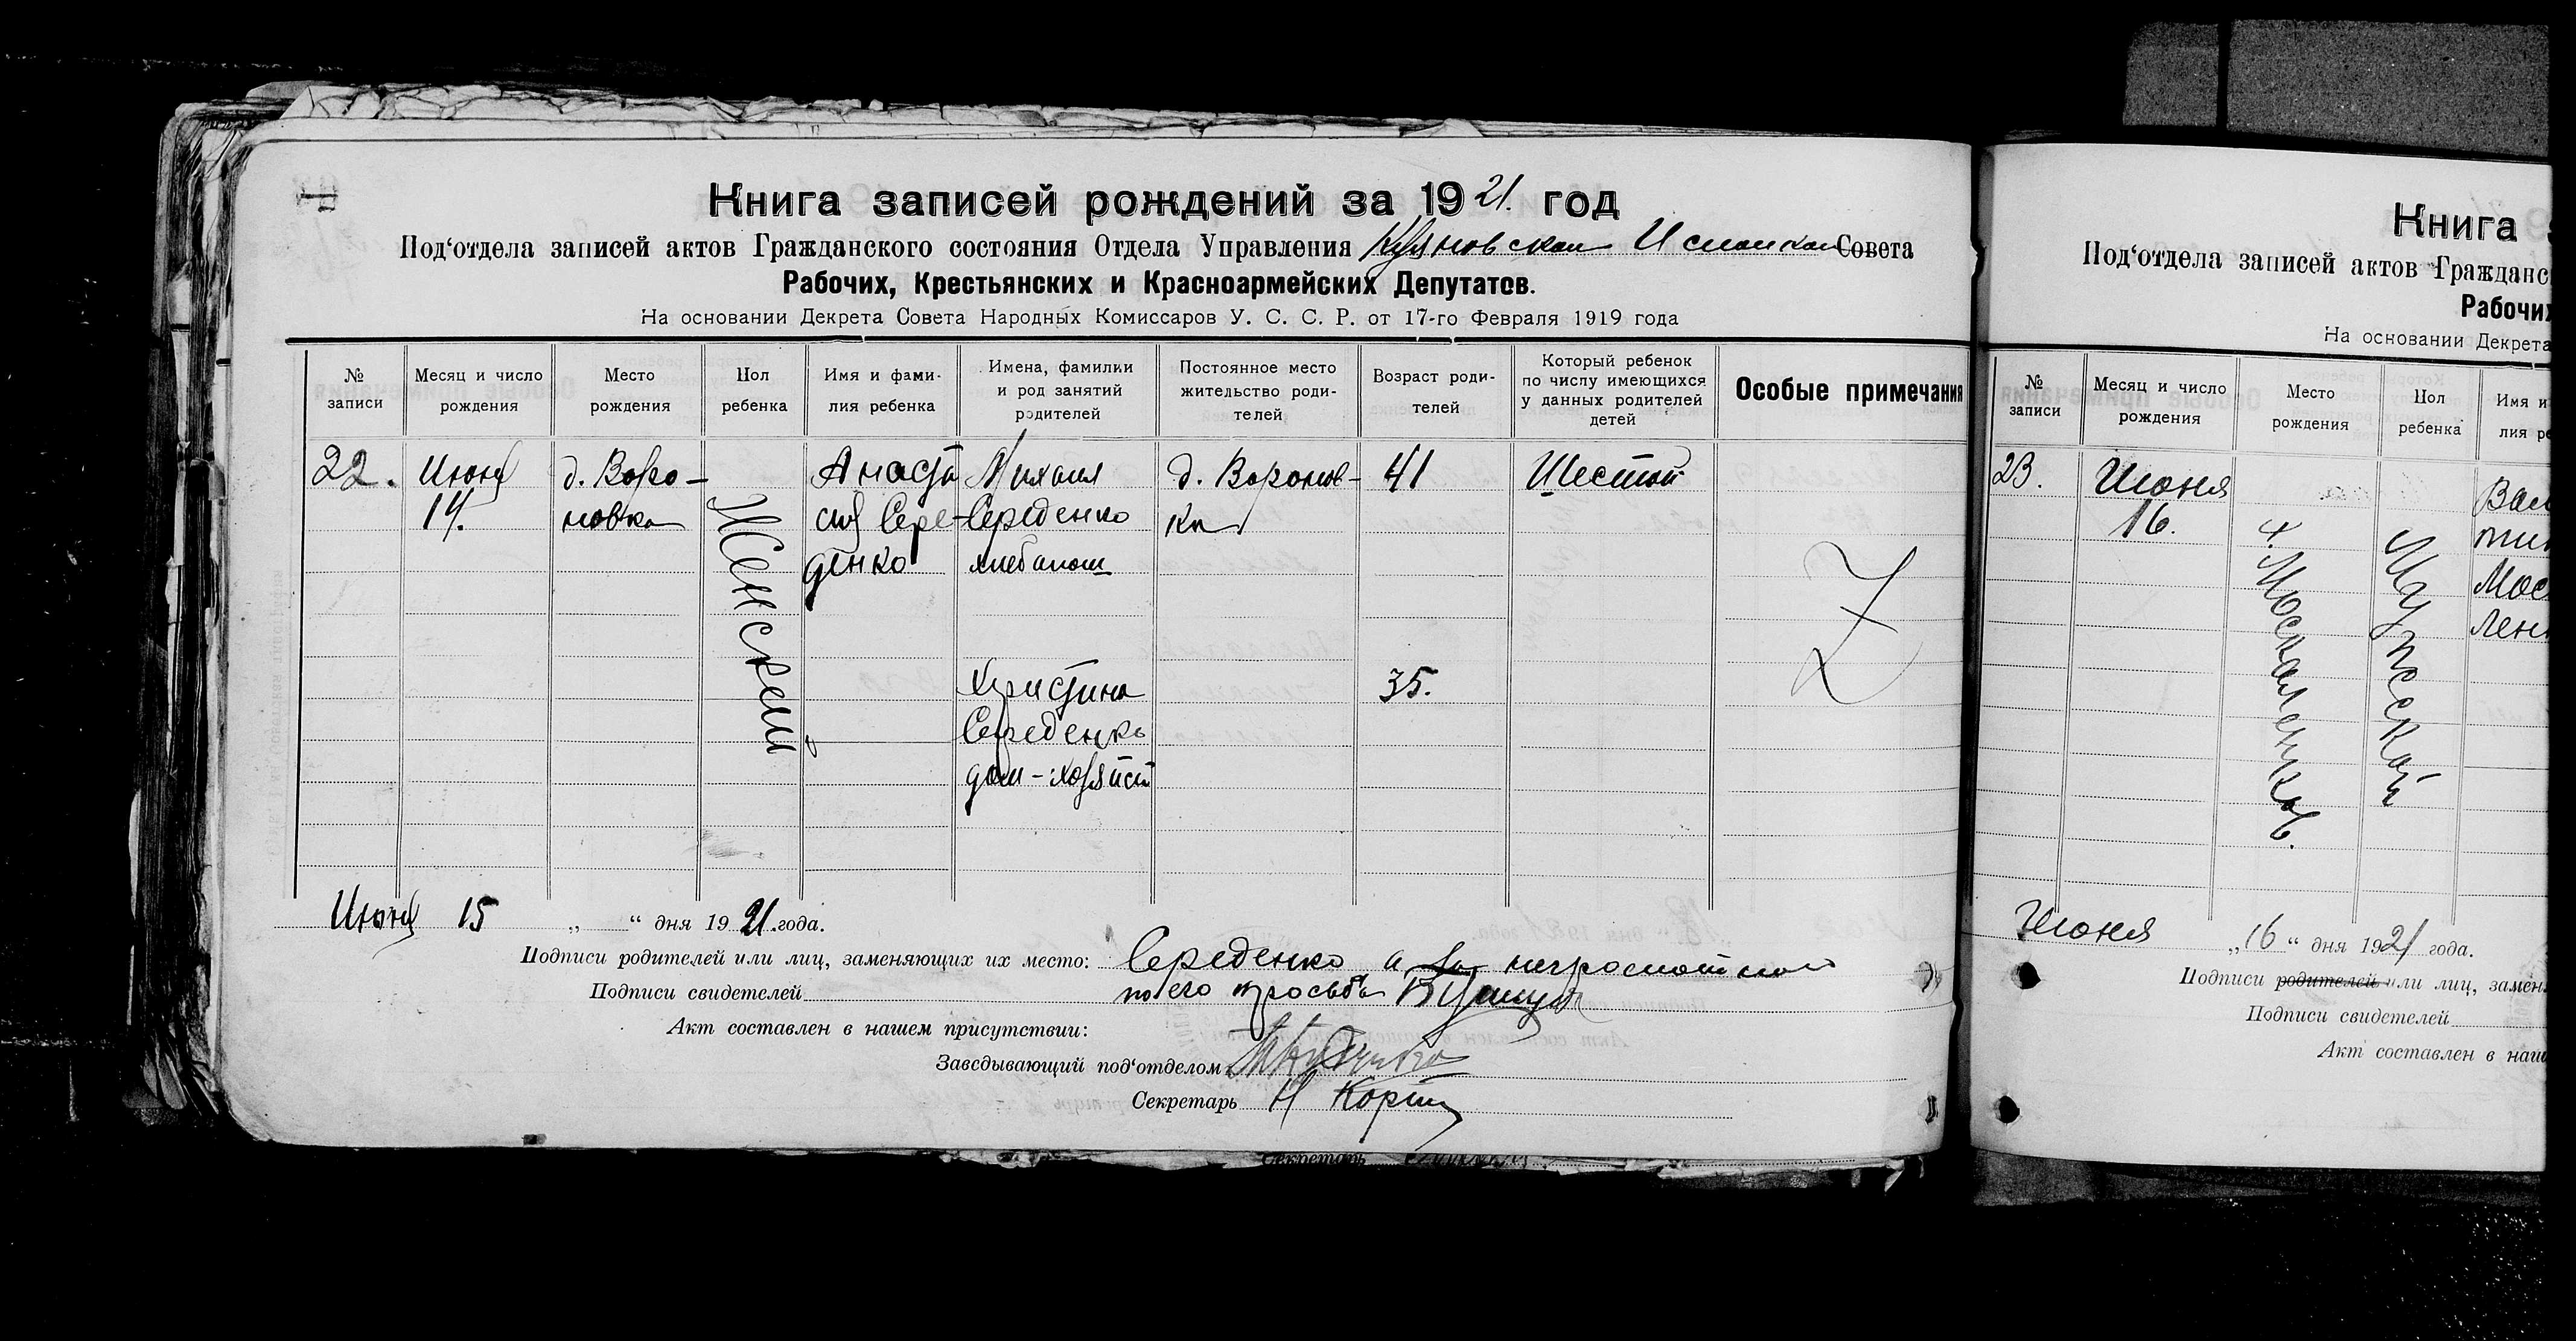 Книга записей рождений за 1921. год
Под‘отдела записей актов Гражданского состояния Отдела Управления Совета
Рабочих, Крестьянских и Красноармейских Депутатов.
На основании Декрета Совета Народных Комиссаров У. С. С. Р. от 17-го Февраля 1919 года
№ записи
Месяц и число рождения
Место рождения
Пол ребенка
Имя и фами-
лия ребенка
Имена, фамилии
и род занятий
родителей
Постоянное место
жительство роди-
телей
Возраст роди-
телей
Который ребенок
по числу имеющихся
у данных родителей
детей
Особые примечания
22.
Июня
14.
д. Воро-
новка
Женский
Анаста
сия Сере-
денко
Михаил
Середенко
хлебопаш
д. Воронов-
ка
41
Шестой
Христина
Середенко
дом-хозяйст
35.
Июня 15 „ “ дня 1921.года.
Подписи родителей или лиц, заменяющих их место: Середенко а за неграмотного
Подписи свидетелей по его просьбе
Акт составлен в нашем присутствии:
Заведывающий под‘отделом
Секретарь
Секретарь
Книга
Под‘отдела записей актов Гражданс
Рабочих
На основании Декрета
№ записи
Месяц и число
рождения
Место
рождения
Пол
ребенка
Имя и
лия ре
23.
Июня
16.
х. Москаленков.
Мужской
Вал
тин
Мос
лен
Июня „16“ дня 1921 года.
Подписи родителей или лиц, замен
Подписи свидетелей
Акт составлен в наш